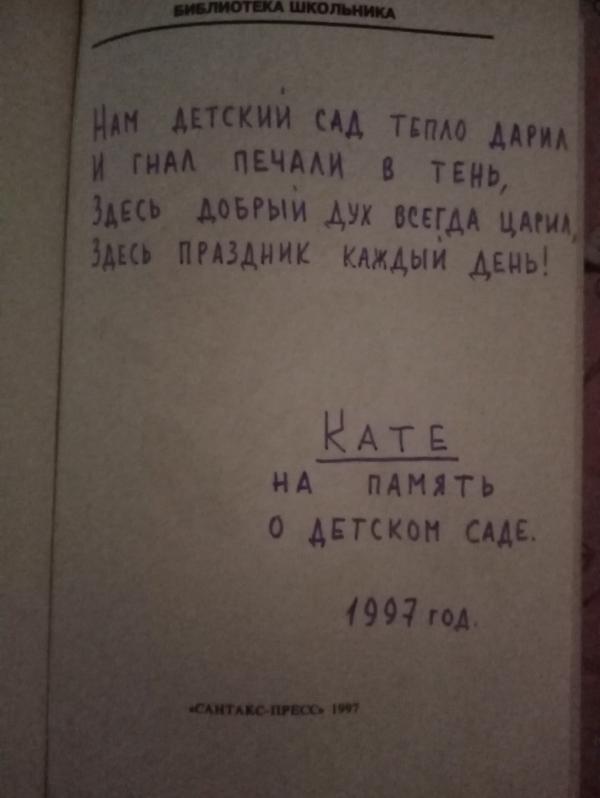 БИБЛИОТЕКА ШКОЛЬНИКА
НАМ ДЕТСКИЙ САД ТЕПЛО ДАРИЛ
И ГНАЛ ПЕЧАЛИ В ТЕНЬ,
ЗДЕСЬ ДОБРЫЙ ДУХ ВСЕГДА ЦАРИЛ,
ЗДЕСЬ ПРАЗДНИК КАЖДЫЙ ДЕНЬ!
КАТЕ
НА ПАМЯТЬ
О ДЕТСКОМ САДЕ.
1997 год.
«САНТАКС-ПРЕСС» 1997